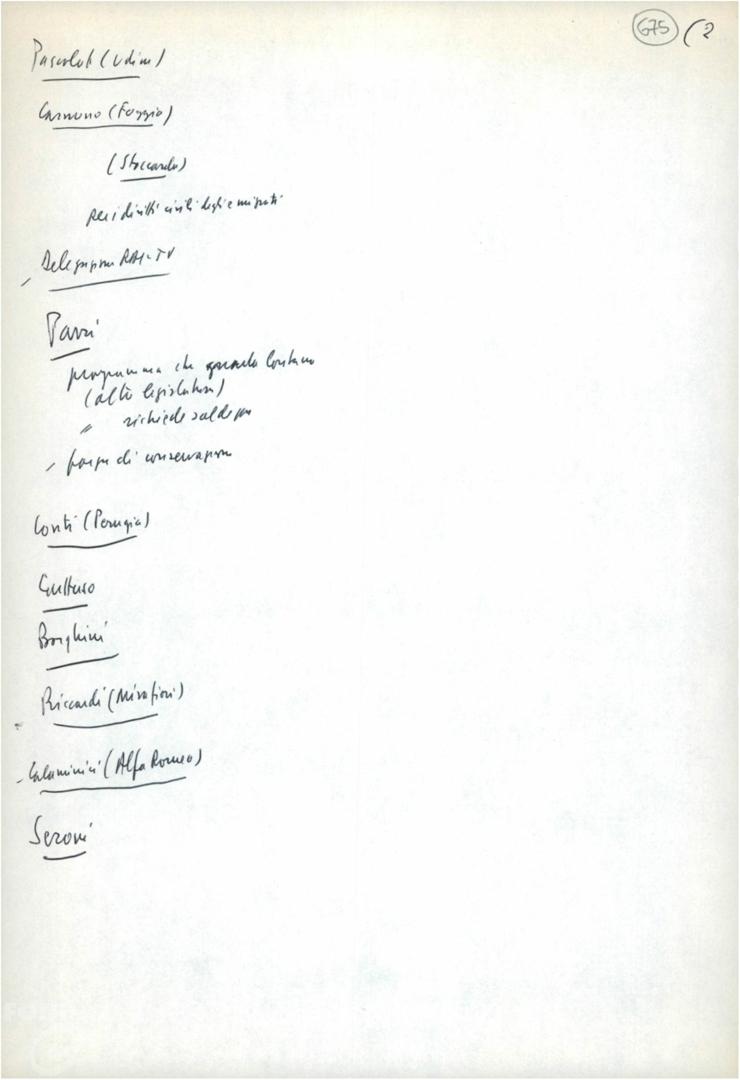 675 (2
Pascolat (Udine)
Carmeno (Foggia)
(Stoccarda)
per i diritti civili degli emigrati
Delegazione RAI-TV
Parri
programma che guarda lontano
(altre legislature)
" richiede saldezza
forze di conservazione
Conti (Perugia)
Guttuso
Borghini
Riccardi (Mirafiori)
Calaminici (Alfa Romeo)
Seroni